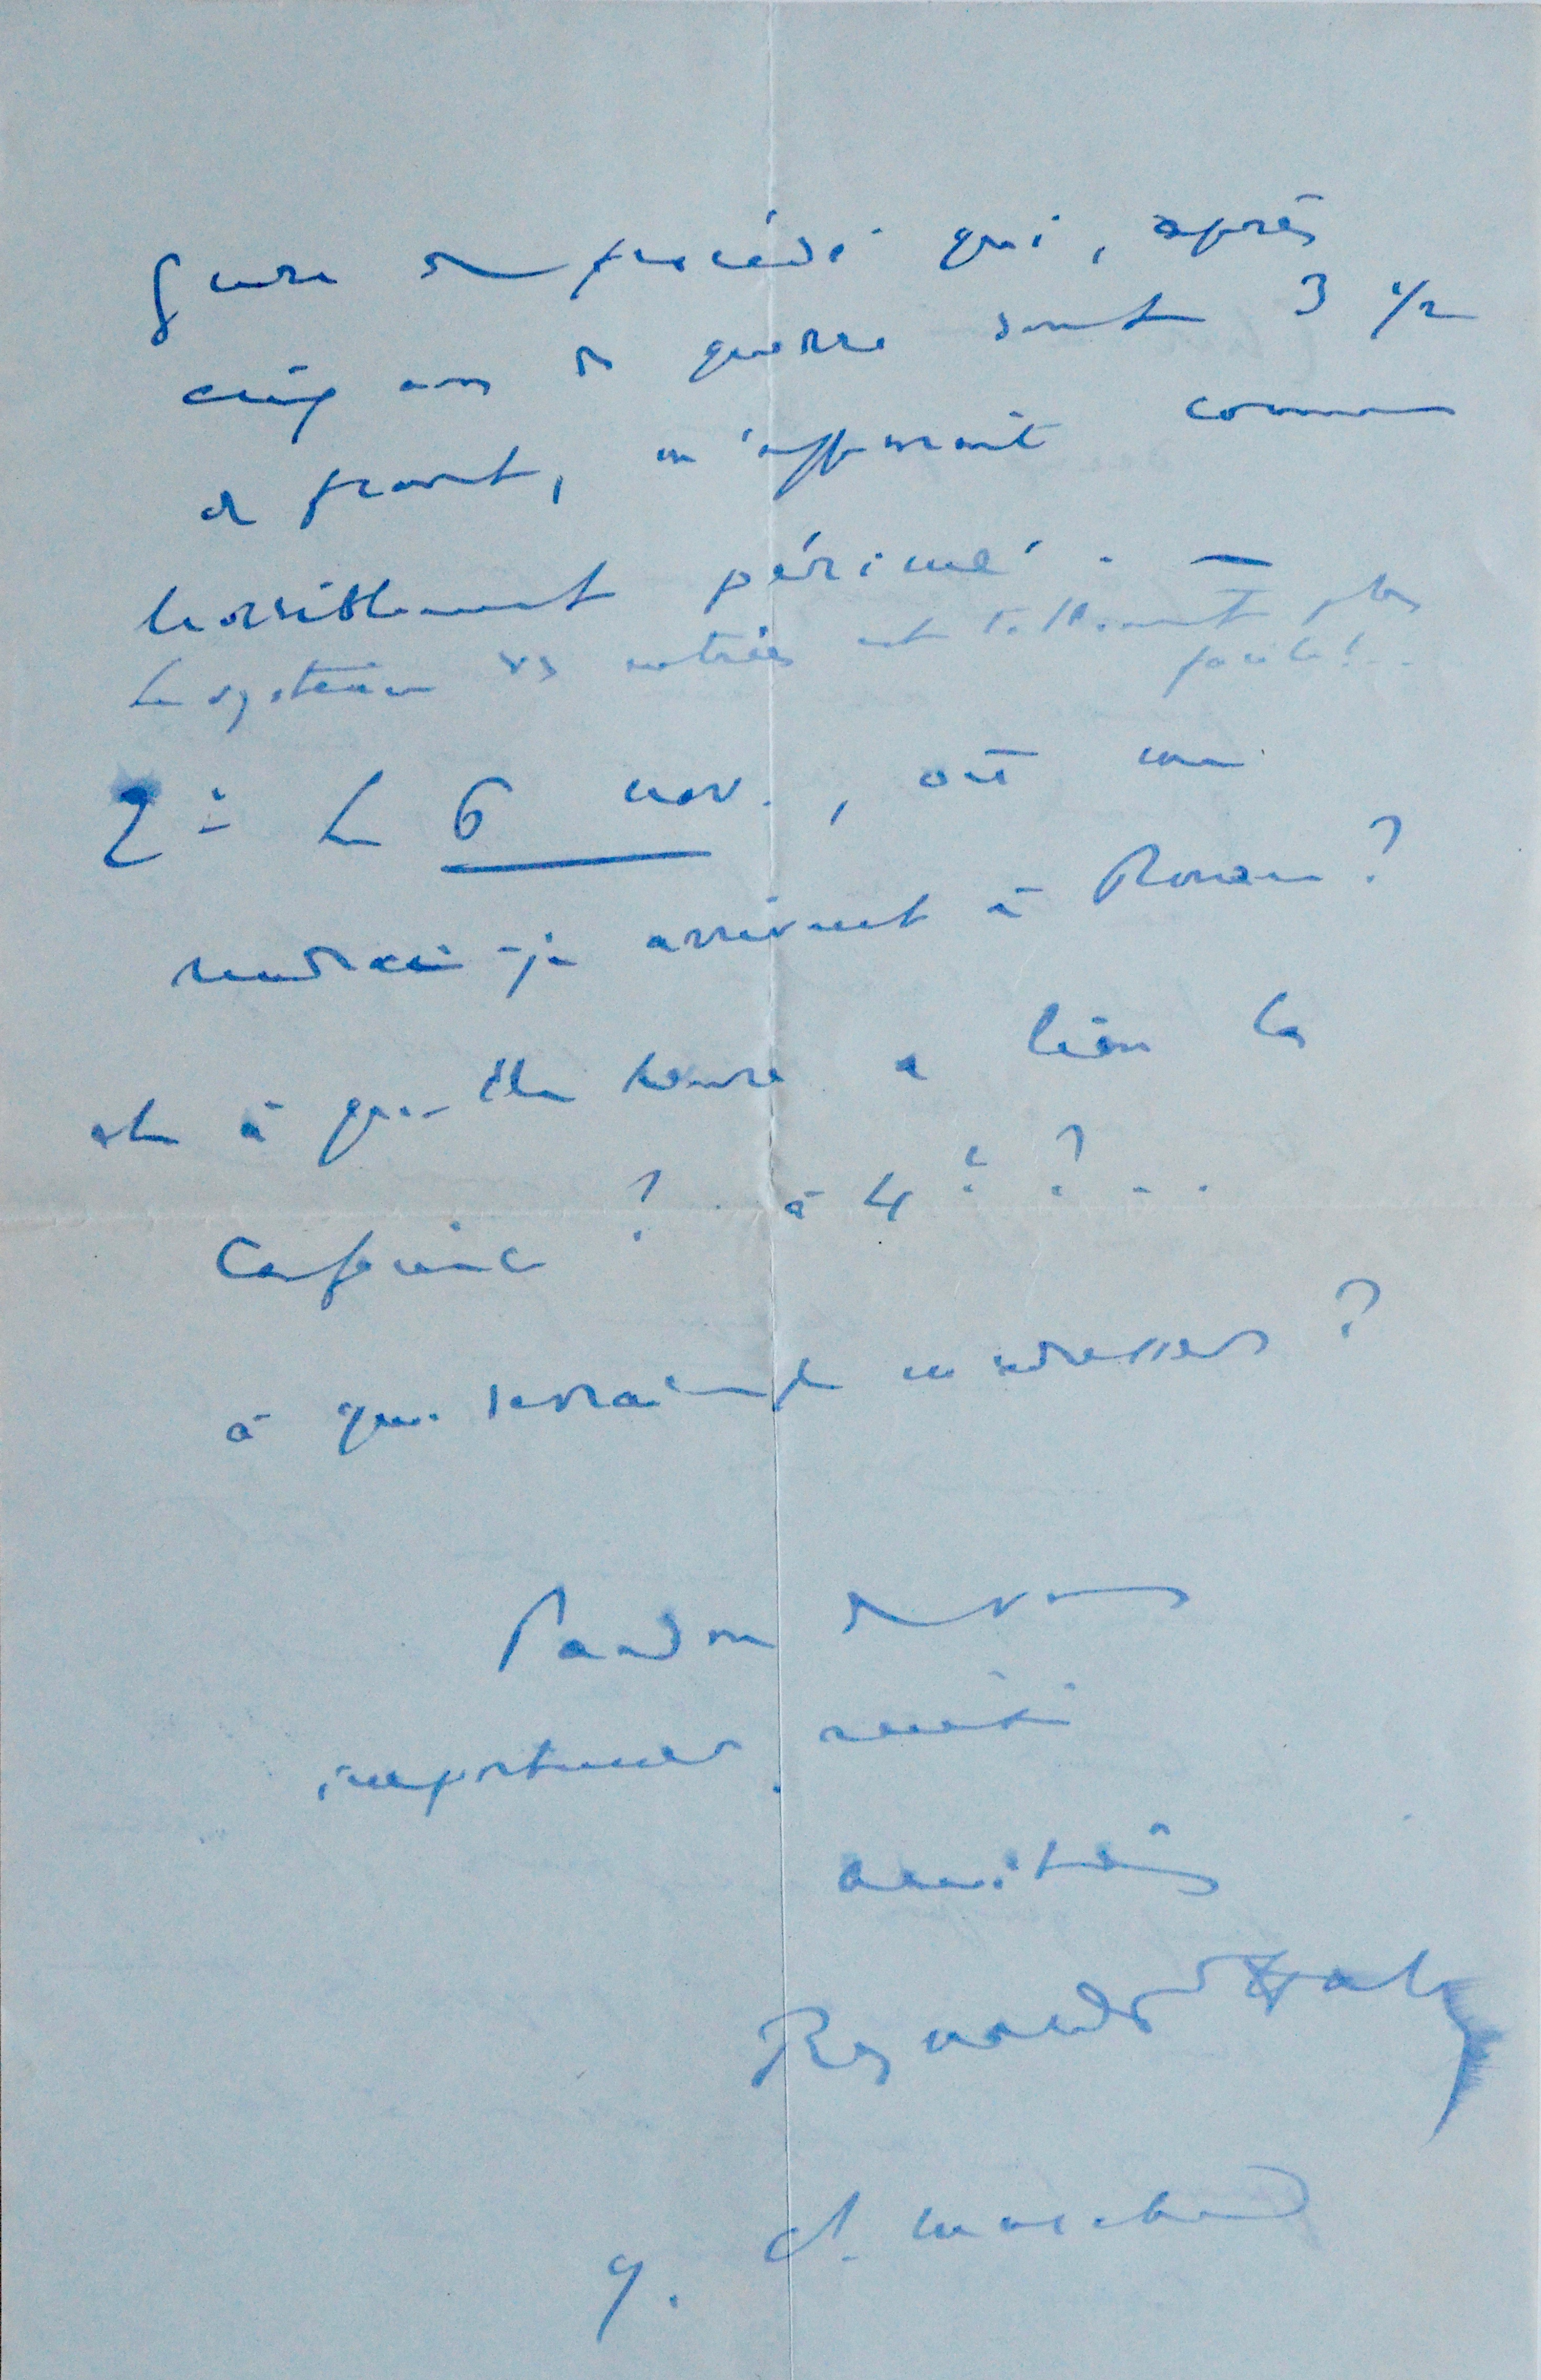 genre de procédé qui, après
cinq ans de guerre dont 3 1/2
de front, m'apparaît comme
horriblement périmé. —
Le système des entrées est tellement plus
facile!..
2° Le 6 nov., où me
rendrai-je arrivant à Rouen?
et à quelle heure a lieu la
Causerie? à 4h?..
à qui devrai-je m'adresser?
Pardon de vous
importuner, merci
amitiés
Reynaldo Hahn
9.